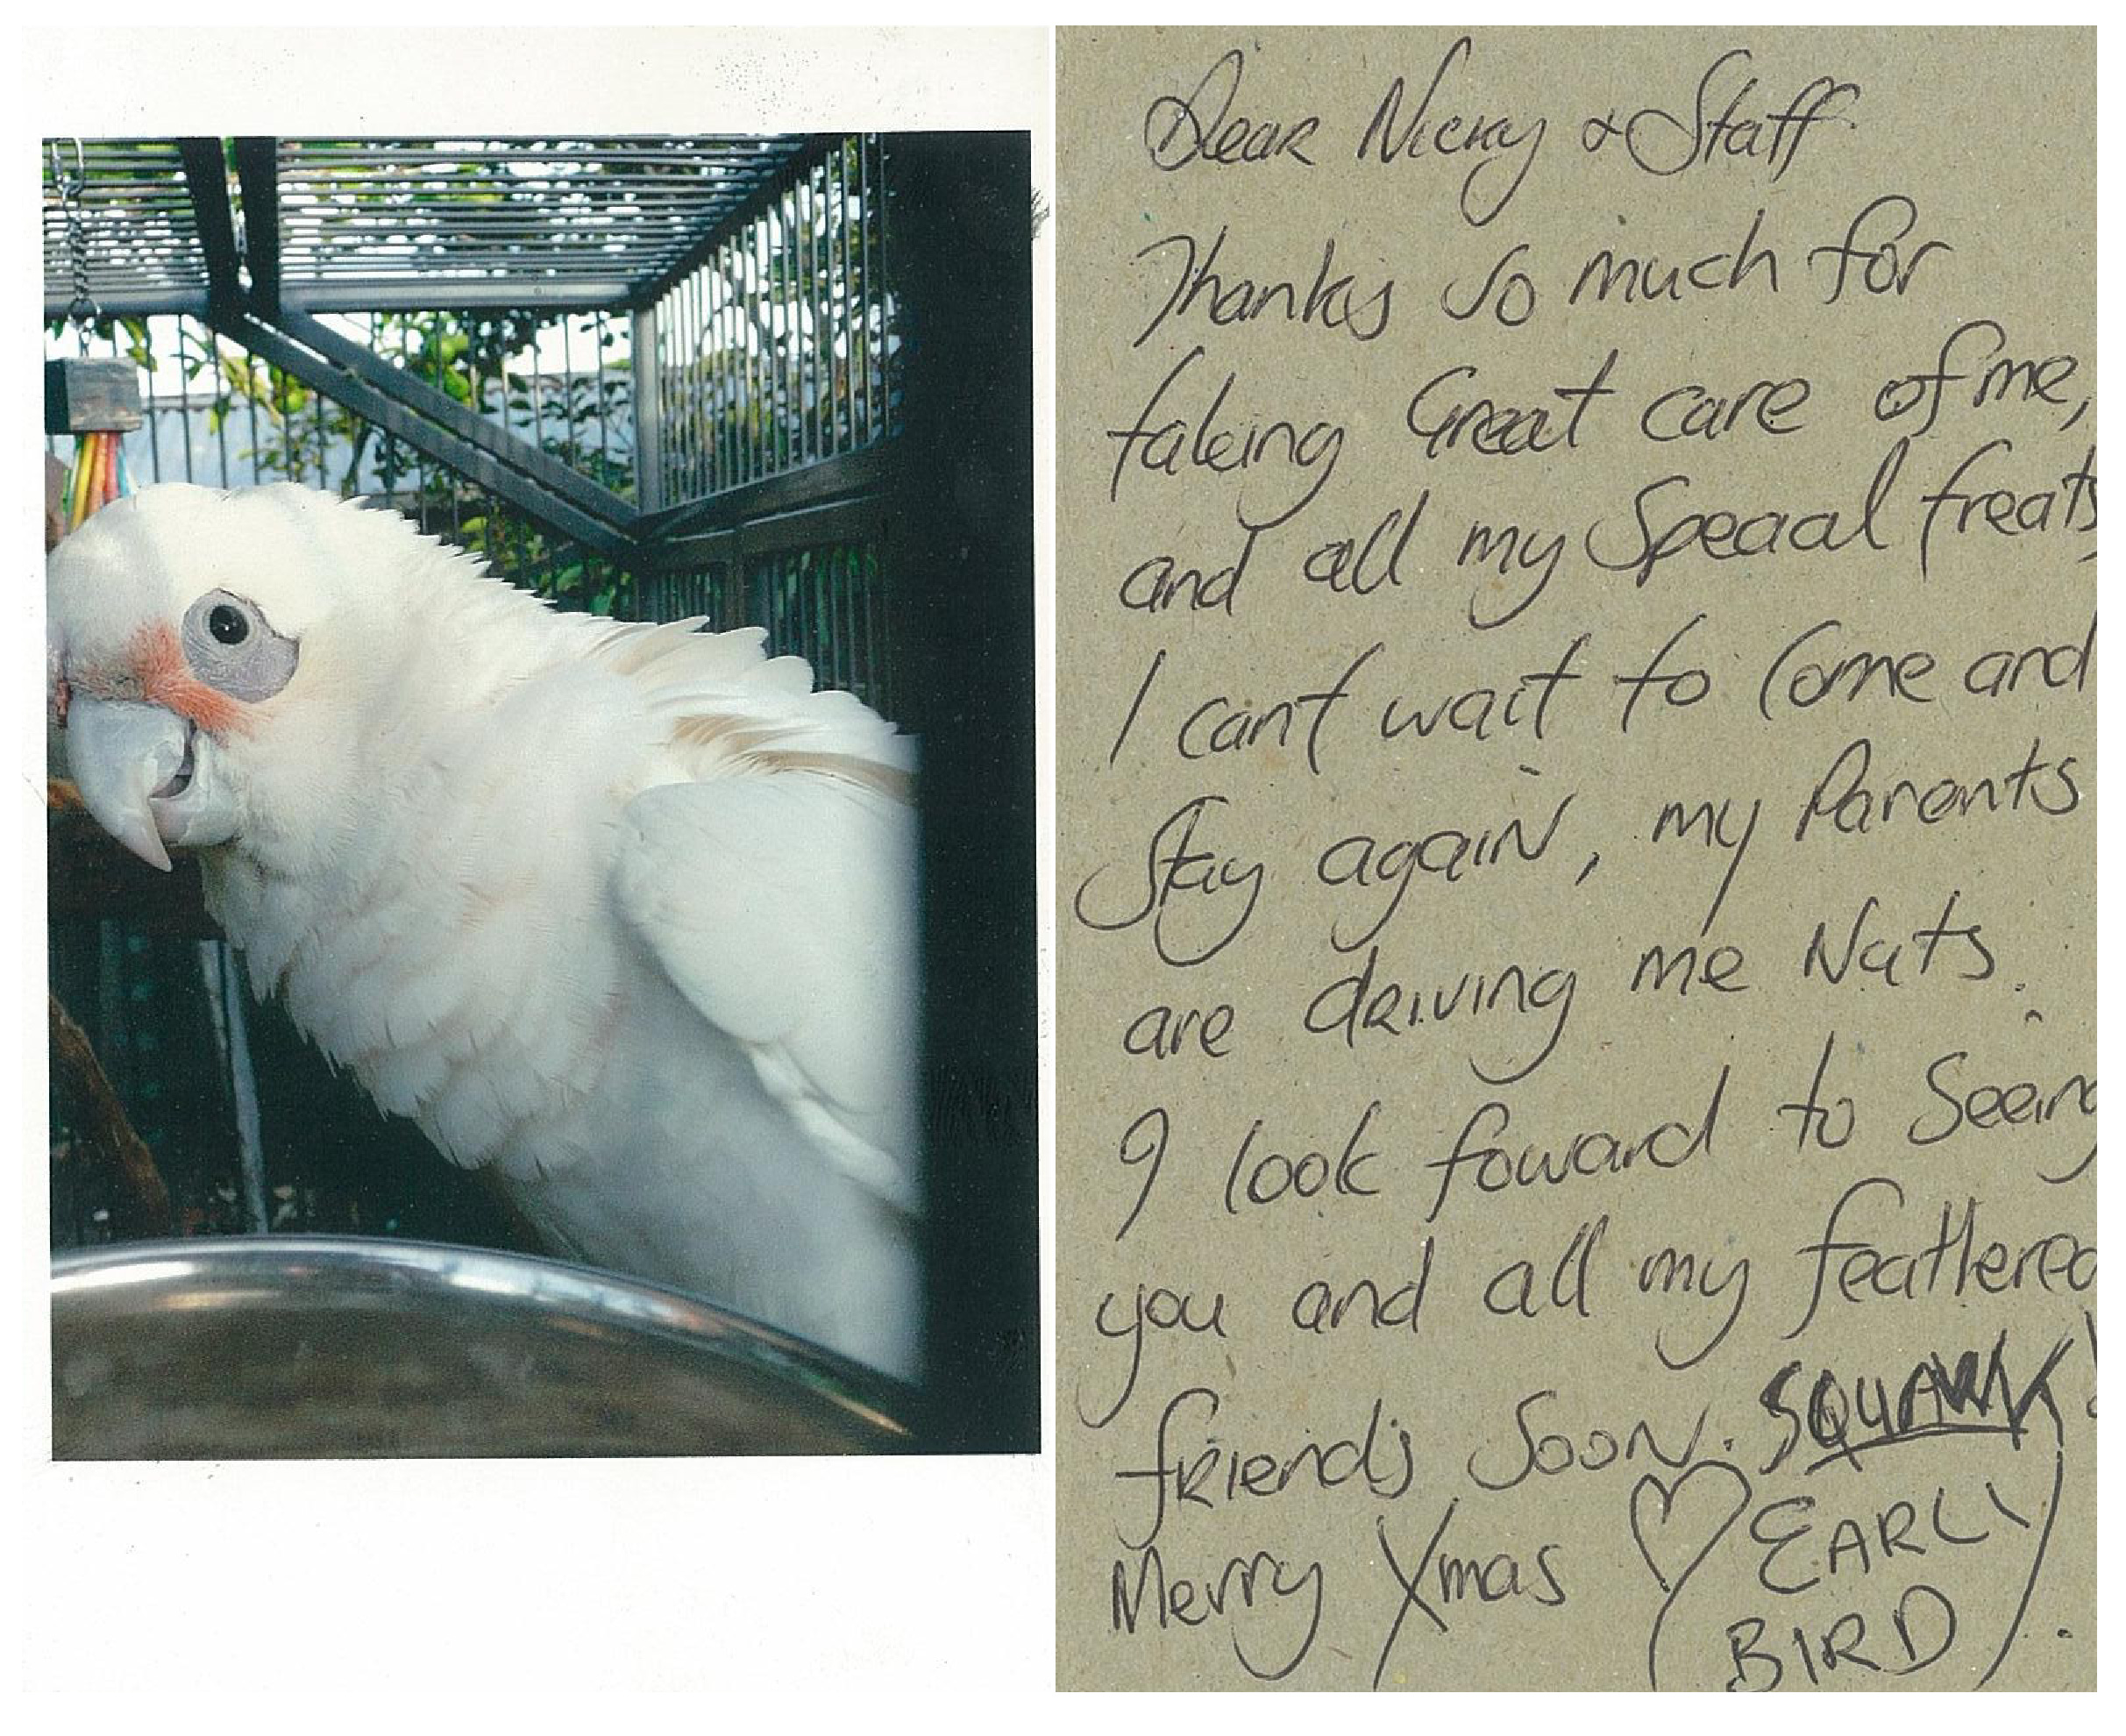 Dear Nicky & Staff
Thanks so much for
taking Great care of me,
and all my Special treats,
I cant wait to Come and
Stay again, my Parents
are driving me Nuts.
I look foward to Seeing
you and all my feathered
friends Soon. SQUAWK!
Merry Xmas ♡ (EARLY
BIRD).